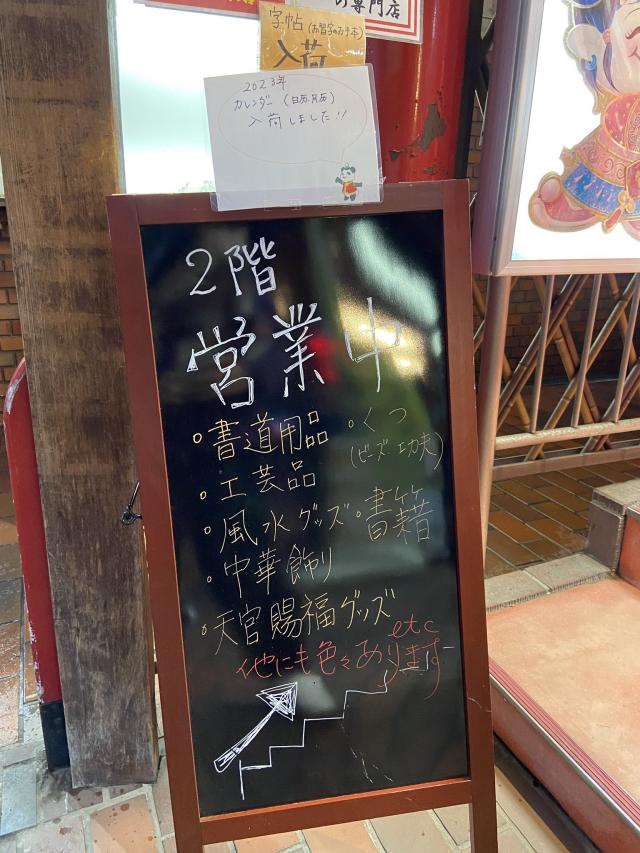 の専門店
字帖(お習字のお手本)
入荷
2023年
カレンダー(日めくり、月めくり)
入荷しました!!
2階
営業中
◦書道用品
◦くつ
(ビーズ・工功夫)
◦工芸品
◦風水グッズ
◦書籍
◦中華飾り
◦天官賜福グッズ
etc
他にも色々あります